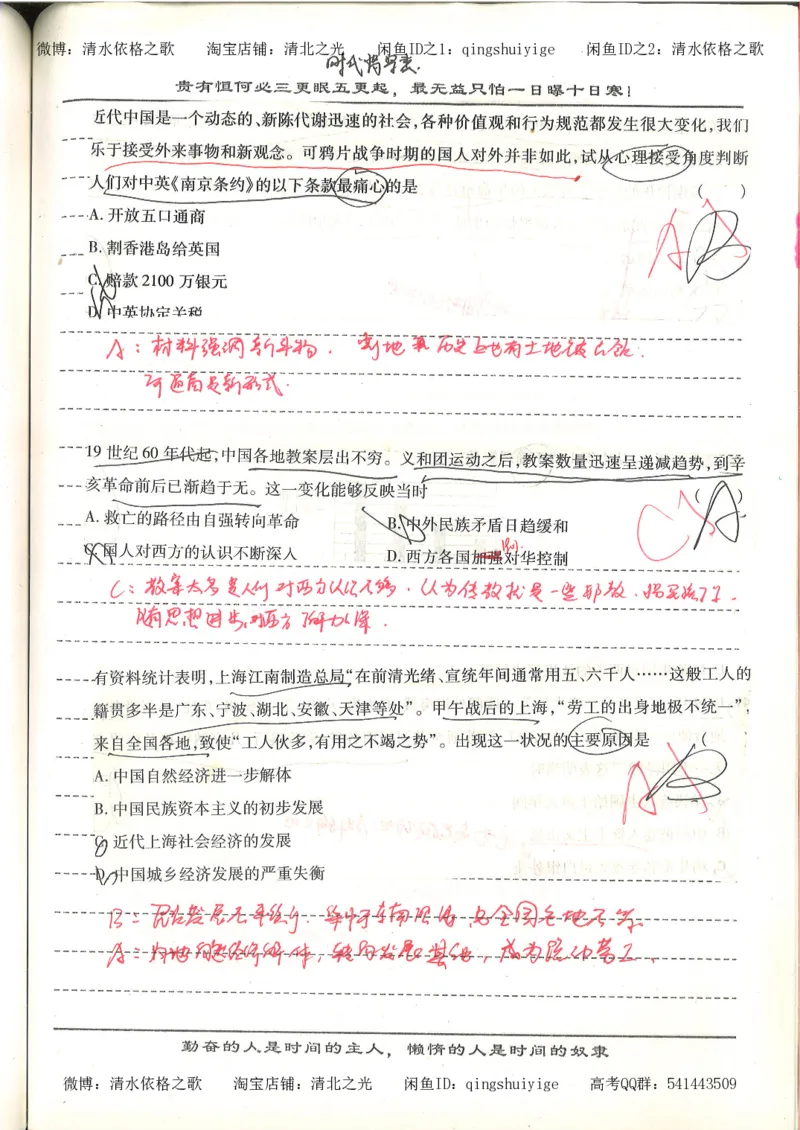 微博：清水依格之歌 淘宝店铺：清北之光 闲鱼ID之1：qingshuiyige 闲鱼ID之2：清水依格之歌
时代特异类
贵有恒何必三更眠五更起，最无益只怕一日曝十日寒！
近代中国是一个动态的、新陈代谢迅速的社会，各种价值观和行为规范都发生很大变化，我们
乐于接受外来事物和新观念。可鸦片战争时期的国人对外并非如此，试从心理接受角度判断
人们对中英《南京条约》的以下条款最痛心的是 （ ）
A. 开放五口通商
A B
B. 割香港岛给英国
C. 赔款 2100 万银元
D. 中英协定关税
A：材料强调新事物． 割地 历史上也有土地
通商是新形式．
19 世纪 60 年代起，中国各地教案层出不穷。义和团运动之后，教案数量迅速呈递减趋势，到辛
亥革命前后已渐趋于无。这一变化能够反映当时 （ ）
C A
A. 救亡的路径由自强转向革命 B. 中外民族矛盾日趋缓和
C. 国人对西方的认识不断深入 D. 西方各国加强对华控制
C：教案大多是人们对西方认识不够．认为传教就是一些邪教．
随思想进步，对西方了解加深．
有资料统计表明，上海江南制造总局“在前清光绪、宣统年间通常用五、六千人……这般工人的
籍贯多半是广东、宁波、湖北、安徽、天津等处”。甲午战后的上海，“劳工的出身地极不统一”，
来自全国各地，致使“工人伙多，有用之不竭之势”。出现这一状况的主要原因是 （ ）
A. 中国自然经济进一步解体
A B
B. 中国民族资本主义的初步发展
C. 近代上海社会经济的发展
D. 中国城乡经济发展的严重失衡
B：民资发展不平衡 集中于东南沿海 与全国各地不符
A：
勤奋的人是时间的主人，懒惰的人是时间的奴隶
微博：清水依格之歌 淘宝店铺：清北之光 闲鱼ID：qingshuiyige 高考QQ群：541443509